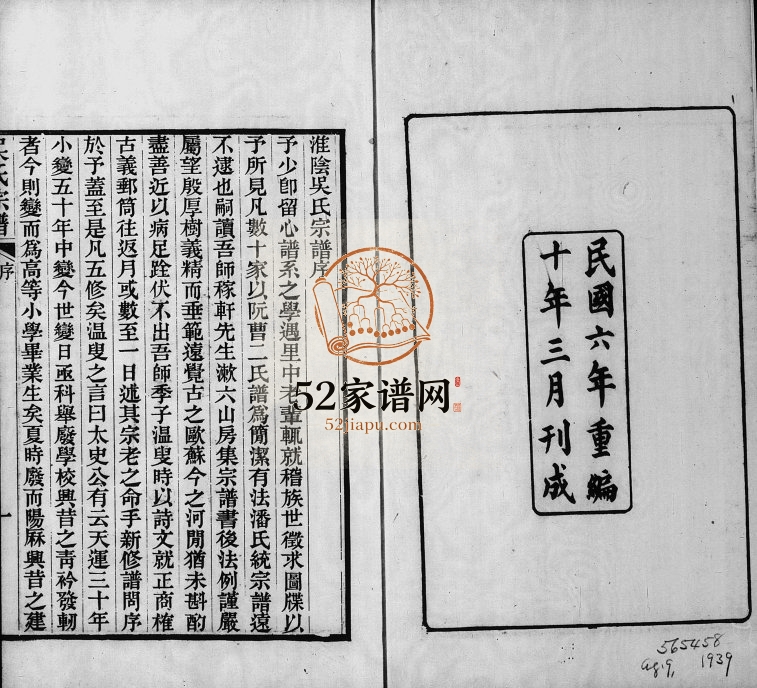 民國六年重編
十年三月刊成
565458
ag. 9, 1939
淮陰吳氏宗譜序
予少卽留心譜系之學遇里中老輩輒就稽族世徵求圖牒以
予所見凡數十家以阮曹二氏譜爲簡潔有法潘氏統宗譜遠
不逮也嗣讀吾師稼軒先生漱六山房集宗譜書後法例謹嚴
屬望殷厚樹義精而垂範遠覺古之歐蘇今之河閒猶未斟酌
盡善近以病足跧伏不出吾師季子溫叟時以詩文就正商榷
古義郵筒往返月或數至一日述其宗老之命手新修譜問序
於予蓋至是凡五修矣溫叟之言曰太史公有云天運三十年
小變五十年中變今世變日亟科舉廢學校興昔之靑衿發軔
者今則變而爲高等小學畢業生矣夏時廢而陽麻興昔之建
吳氏宗譜
序
一
52家谱网
52jiapu.com